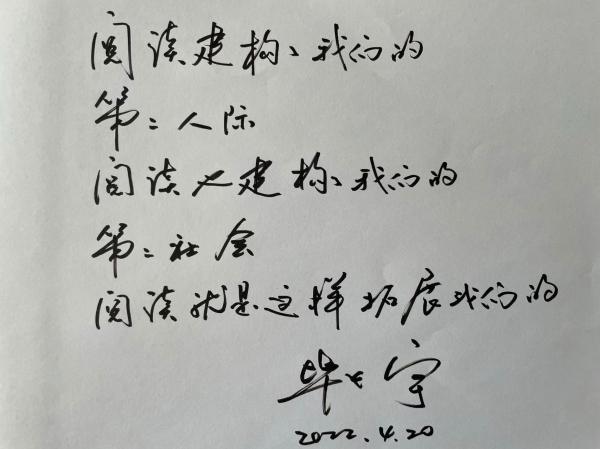 阅读建构、我们的
第二人际
阅读又建构、我们的
第二社会
阅读就是这样拓展我们的
毕 宇
2022.4.20